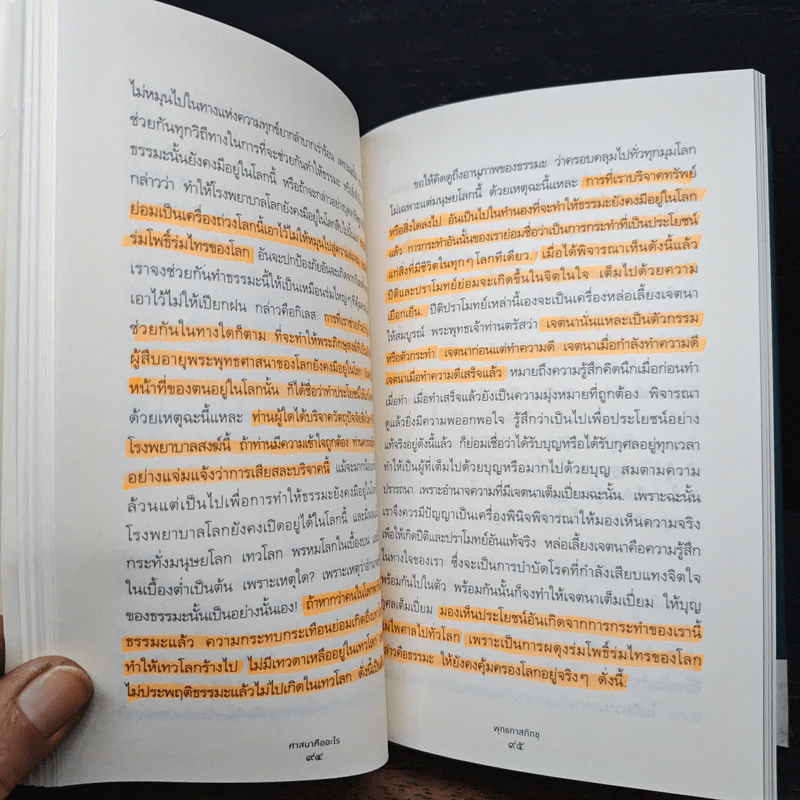 ไม่หมุนไปในทางแห่งความทุกข์ยากลำบากเร่าร้อน
ช่วยกันทุกวิถีทางในการที่จะช่วยกันทำให้ธรรมะ
ธรรมะนั้นยังคงมีอยู่ในโลกนี้ หรือถ้าจะกล่าวอย่าง
กล่าวว่า ทำให้โรงพยาบาลโลกยังคงมีอยู่ในโลก
ย่อมเป็นเครื่องถ่วงโลกนี้เอาไว้ให้หมุนไปสู่ความ
ร่มโพธิ์ร่มไทรของโลก อันจะปกป้องภัยอันจะเกิดจาก
เราจงช่วยกันทำธรรมะนี้ให้เป็นเหมือนร่มใหญ่ๆ
เอาไว้ไม่ให้เปียกฝน กล่าวคือกิเลส. การที่เรา
ช่วยกันในทางใดก็ตาม ที่จะทำให้พระภิกษุสงฆ์
ผู้สืบอายุพระพุทธศาสนาของโลกยังคงมีอยู่ในโลก
หน้าที่ของตนอยู่ในโลกนั้น ก็ได้ชื่อว่าทำประโยชน์
ด้วยเหตุฉะนี้แหละ ท่านผู้ใดได้บริจาควัตถุปัจจัย
โรงพยาบาลสงฆ์นี้ ถ้าท่านมีความเข้าใจถูกต้อง
อย่างแจ่มแจ้งว่าการเสียสละบริจาคนี้ แม้จะมาก
ล้วนแต่เป็นไปเพื่อการทำให้ธรรมะยังคงมีอยู่ใน
โรงพยาบาลโลกยังคงเปิดอยู่ได้ในโลกนี้
กระทั่งมนุษยโลก เทวโลก พรหมโลกในเบื้องบน
ในเบื้องต่ำเป็นต้น เพราะเหตุใด? เพราะเหตุว่า
ของธรรมะนั้นเป็นอย่างนั้นเอง! ถ้าหากว่าคนในโลก
ธรรมะแล้ว ความกระทบกระเทือนย่อมเกิดถึง
ทำให้เทวโลกร้างไป ไม่มีเทวดาเหลืออยู่ในเทวโลก
ไม่ประพฤติธรรมะแล้วไม่ไปเกิดในเทวโลก ดังนี้
ศาสนาคืออะไร
๙๔
ขอให้คิดดูถึงอานุภาพของธรรมะ ว่าครอบคลุมไปทั่วทุกมุมโลก
ไม่เฉพาะแต่มนุษยโลกนี้ ด้วยเหตุฉะนี้แหละ การที่เราบริจาคทรัพย์
หรือสิ่งใดลงไป อันเป็นไปในทำนองที่จะทำให้ธรรมะยังคงมีอยู่ในโลก
แล้ว การกระทำอันนั้นของเราย่อมชื่อว่าเป็นการกระทำที่เป็นประโยชน์
แก่สิ่งที่มีชีวิตในทุกๆ โลกทีเดียว. เมื่อได้พิจารณาเห็นดังนี้แล้ว
ปีติและปราโมทย์ย่อมจะเกิดขึ้นในจิตในใจ เต็มไปด้วยความ
เยือกเย็น. ปีติปราโมทย์เหล่านี้เองจะเป็นเครื่องหล่อเลี้ยงเจตนา
ให้สมบูรณ์ พระพุทธเจ้าท่านตรัสว่า เจตนานั่นแหละเป็นตัวกรรม
หรือตัวกระทำ. เจตนาก่อนแต่ทำความดี เจตนาเมื่อกำลังทำความดี
เจตนาเมื่อทำความดีเสร็จแล้ว หมายถึงความรู้สึกคิดนึกเมื่อก่อนทำ
เมื่อทำ เมื่อทำเสร็จแล้วยังเป็นความมุ่งหมายที่ถูกต้อง พิจารณา
ดูแล้วยิ่งมีความพออกพอใจ รู้สึกว่าเป็นไปเพื่อประโยชน์อย่าง
แท้จริงอยู่ดังนี้แล้ว ก็ย่อมเชื่อว่าได้รับบุญหรือได้รับกุศลอยู่ทุกเวลา
ทำให้เป็นผู้ที่เต็มไปด้วยบุญหรือมากไปด้วยบุญ สมตามความ
ปรารถนา เพราะอำนาจความที่มีเจตนาเต็มเปี่ยมฉะนั้น. เพราะฉะนั้น
เราจึงควรมีปัญญาเป็นเครื่องพินิจพิจารณาให้มองเห็นความจริง
เพื่อให้เกิดปีติและปราโมทย์อันแท้จริง หล่อเลี้ยงเจตนาคือความรู้สึก
ในทางใจของเรา ซึ่งจะเป็นการบำบัดโรคที่กำลังเสียบแทงจิตใจ
พร้อมกันไปในตัว พร้อมกันนั้นก็จงทำให้เจตนาเต็มเปี่ยม ให้บุญ
กุศลเต็มเปี่ยม มองเห็นประโยชน์อันเกิดจากการกระทำของเรานี้
แผ่ไพศาลไปทั่วโลก เพราะเป็นการผดุงร่มโพธิ์ร่มไทรของโลก
กล่าวคือธรรมะ ให้ยังคงคุ้มครองโลกอยู่จริงๆ ดังนี้.
พุทธทาสภิกขุ
๙๕